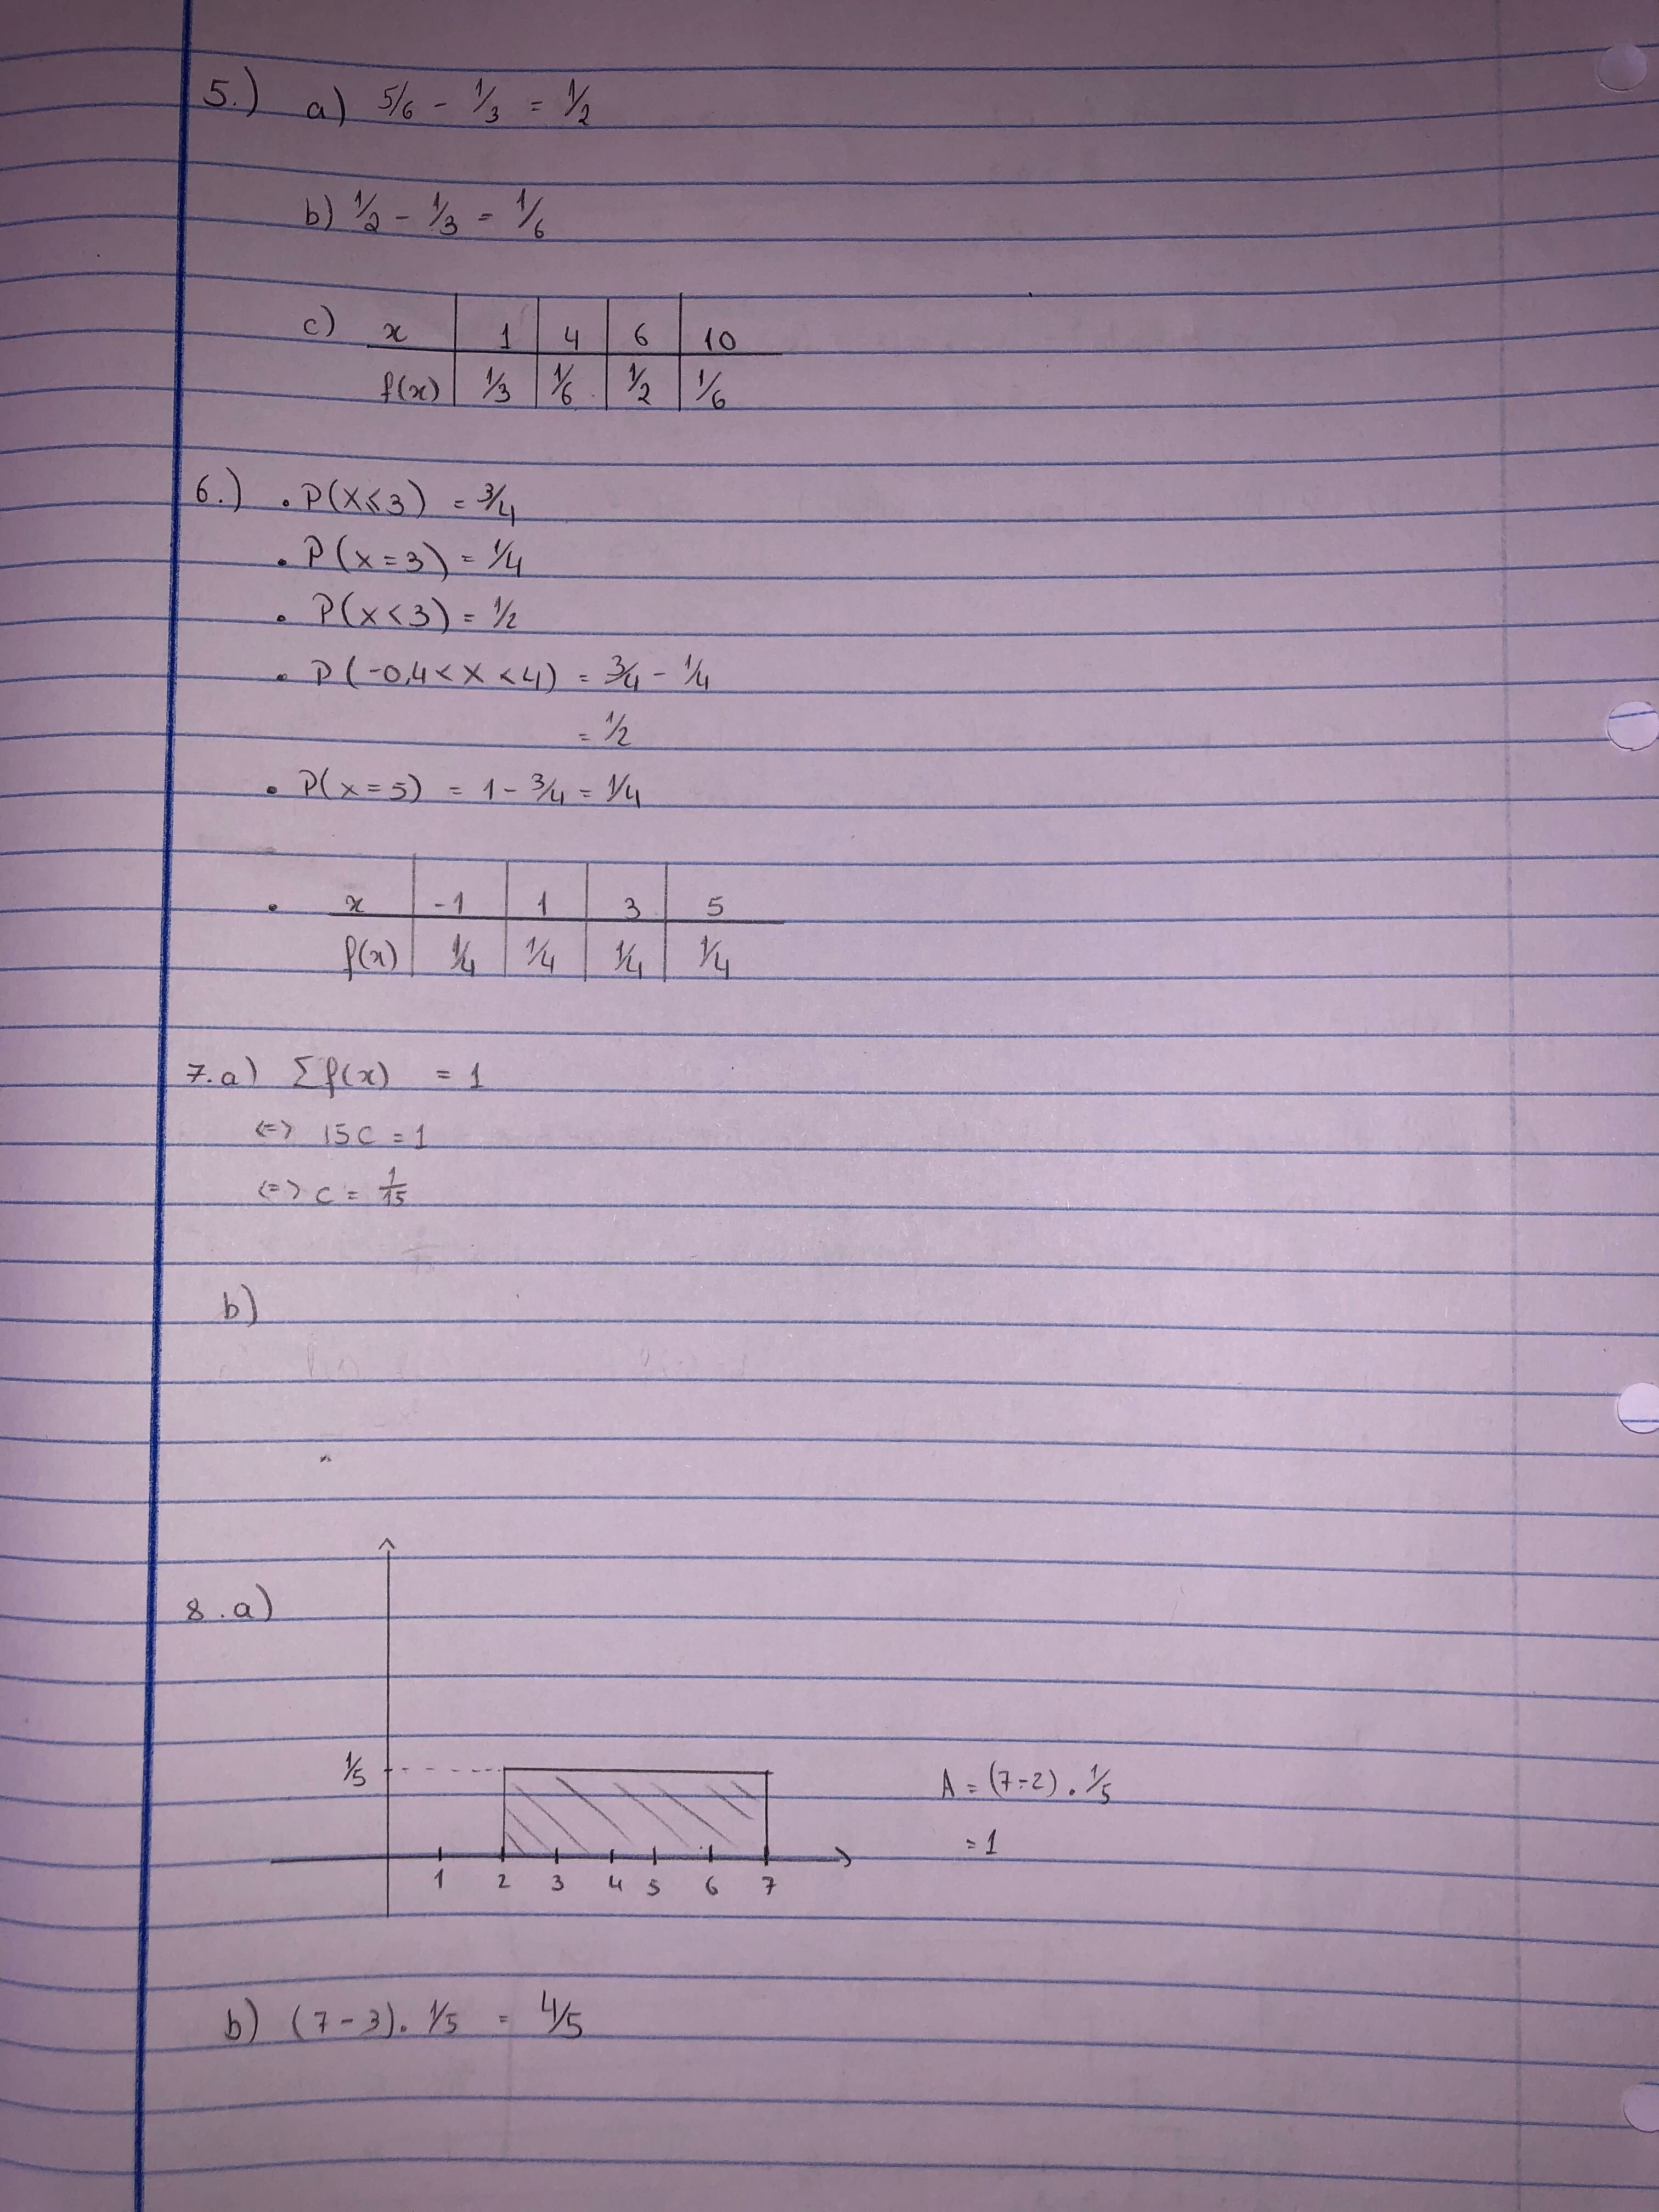 5.) a) 5/6 - 1/3 = 1/2
b) 1/2 - 1/3 = 1/6
c) x 1 4 6 10
f(x) 1/3 1/6 1/2 1/6
6.) • P(X≤3) = 3/4
• P(x=3) = 1/4
• P(x<3) = 1/2
• P(-0,4<X<4) = 3/4 - 1/4
= 1/2
• P(x=5) = 1 - 3/4 = 1/4
• x -1 1 3 5
f(x) 1/4 1/4 1/4 1/4
7.a) Σf(x) = 1
<=> 15c = 1
<=> c = 1/15
b)
8.a)
1/5
A = (7-2) . 1/5
= 1
1 2 3 4 5 6 7
b) (7-3). 1/5 = 4/5